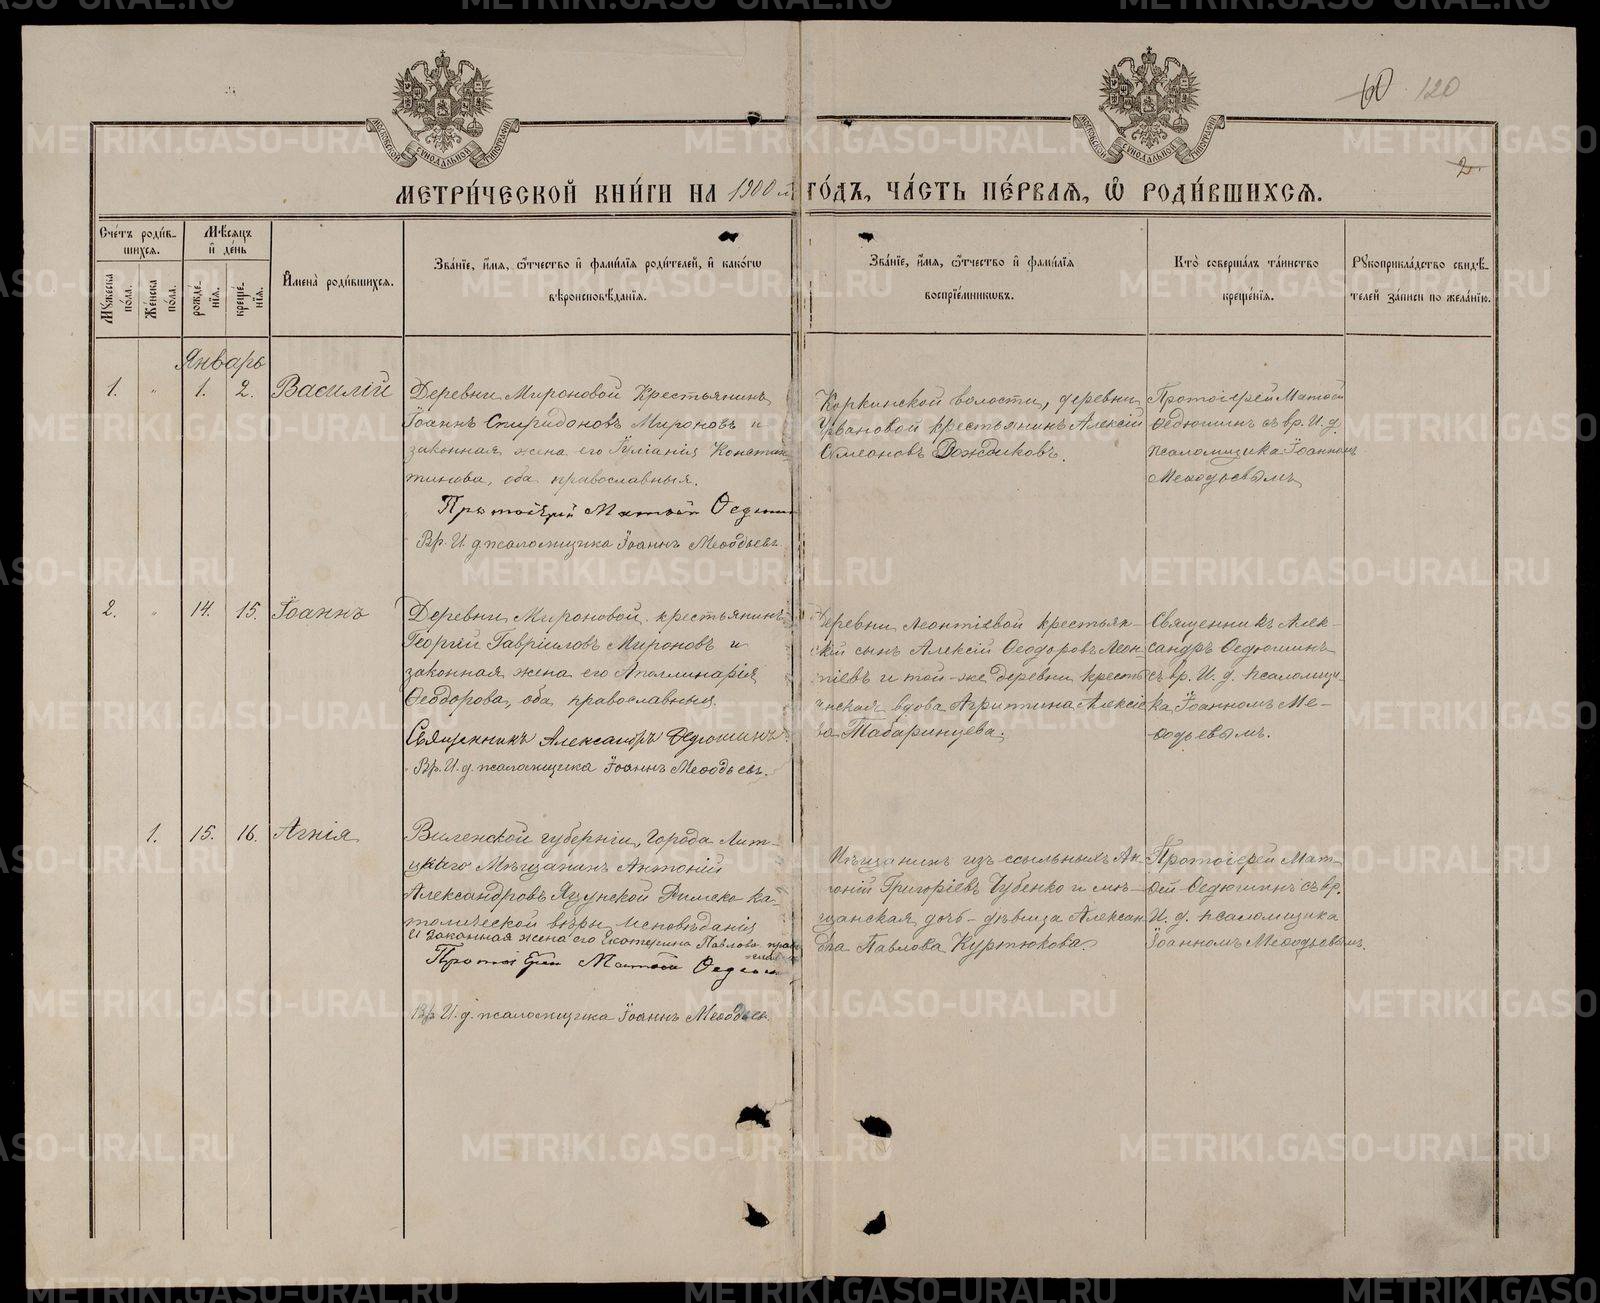 60 120
2.
МОСКОВСКОЙ СѴНОДАЛЬНОЙ ТИПОГРАФІИ
МОСКОВСКОЙ СѴНОДАЛЬНОЙ ТИПОГРАФІИ
МЕТРИ́ЧЕСКОЙ КНИ́ГИ НА 1900 й ГО́ДЪ, ЧА́СТЬ ПЕ́РВАЯ, Ѿ РОДИ́ВШИХСЯ.
Сче́тъ роди́в-
шихся.
Мѣ́сяцъ
и де́нь
Му́жеска по́ла.
Же́нска по́ла.
рожде́нія.
креще́нія.
Имена̀ роди́вшихся.
Зва́ніе, и́мя, ѻ҆́тчество и фами́лія роди́телей, и како́гѡ
вѣроисповѣ́данія.
Зва́ніе, и́мя, ѻ҆́тчество и фами́лія
воспріе́мниковъ.
Кто̀ соверша́лъ та́инство
креще́нія.
Рукоприкла́дство свидѣ́-
телей за́писи по жела́нію.
Январь
1. " 1. 2. Василій
Деревни Мироновой Крестьянинъ
Іоаннъ Спиридоновъ Мироновъ и
законная жена его Іуліанія Констан-
тинова, оба православныя.
Протоіерей Матѳей Ѳедюшин
Вр. И. д. псаломщика Іоаннъ Меѳодьевъ.
Коркинской волости, деревни
Урвановой крестьянинъ Алексій
Симеоновъ.
Протоіерей Матѳей
Ѳедюшинъ съ вр. И. д.
псаломщика Іоанномъ
Меѳодьевымъ
2. " 14. 15. Іоаннъ
Деревни Мироновой крестьянинъ
Георгій Гавріиловъ Мироновъ и
законная жена его Аполлинарія
Ѳеодорова, оба православныя.
Священникъ Александръ Ѳедюшинъ
Вр. И. д. псаломщика Іоаннъ Меѳодьевъ.
Деревни Леонтіевой крестьян-
скій сынъ Алексій Ѳеодоровъ Леон-
тіевъ и той-же деревни кресть-
янская вдова Агриппина Алексіе-
ва Табаринцева.
Священникъ Алек-
сандръ Ѳедюшинъ
съ вр. И. д. псаломщи-
ка Іоанномъ Ме-
ѳодьевымъ.
1. 15. 16. Агнія
Виленской губерніи, Города
Мѣщанинъ Антоній
Александровъ Римско-ка-
толической вѣры Исповѣданія
и законная жена его Екатерина Павлова прав
Протоіерей Матѳей Ѳедюшин
Вр. И. д. псаломщика Іоаннъ Меѳодьевъ
Мѣщанинъ изъ ссыльныхъ Ан-
тоній Григоріевъ Губенко и мѣ-
щанская дочь-дѣвица Алексан-
дра Павлова Куртюкова.
Протоіерей Мат-
ѳей Ѳедюшинъ съ вр.
И. д. псаломщика
Іоанномъ Меѳодьевымъ.
METRIKI.GASO-URAL.RU